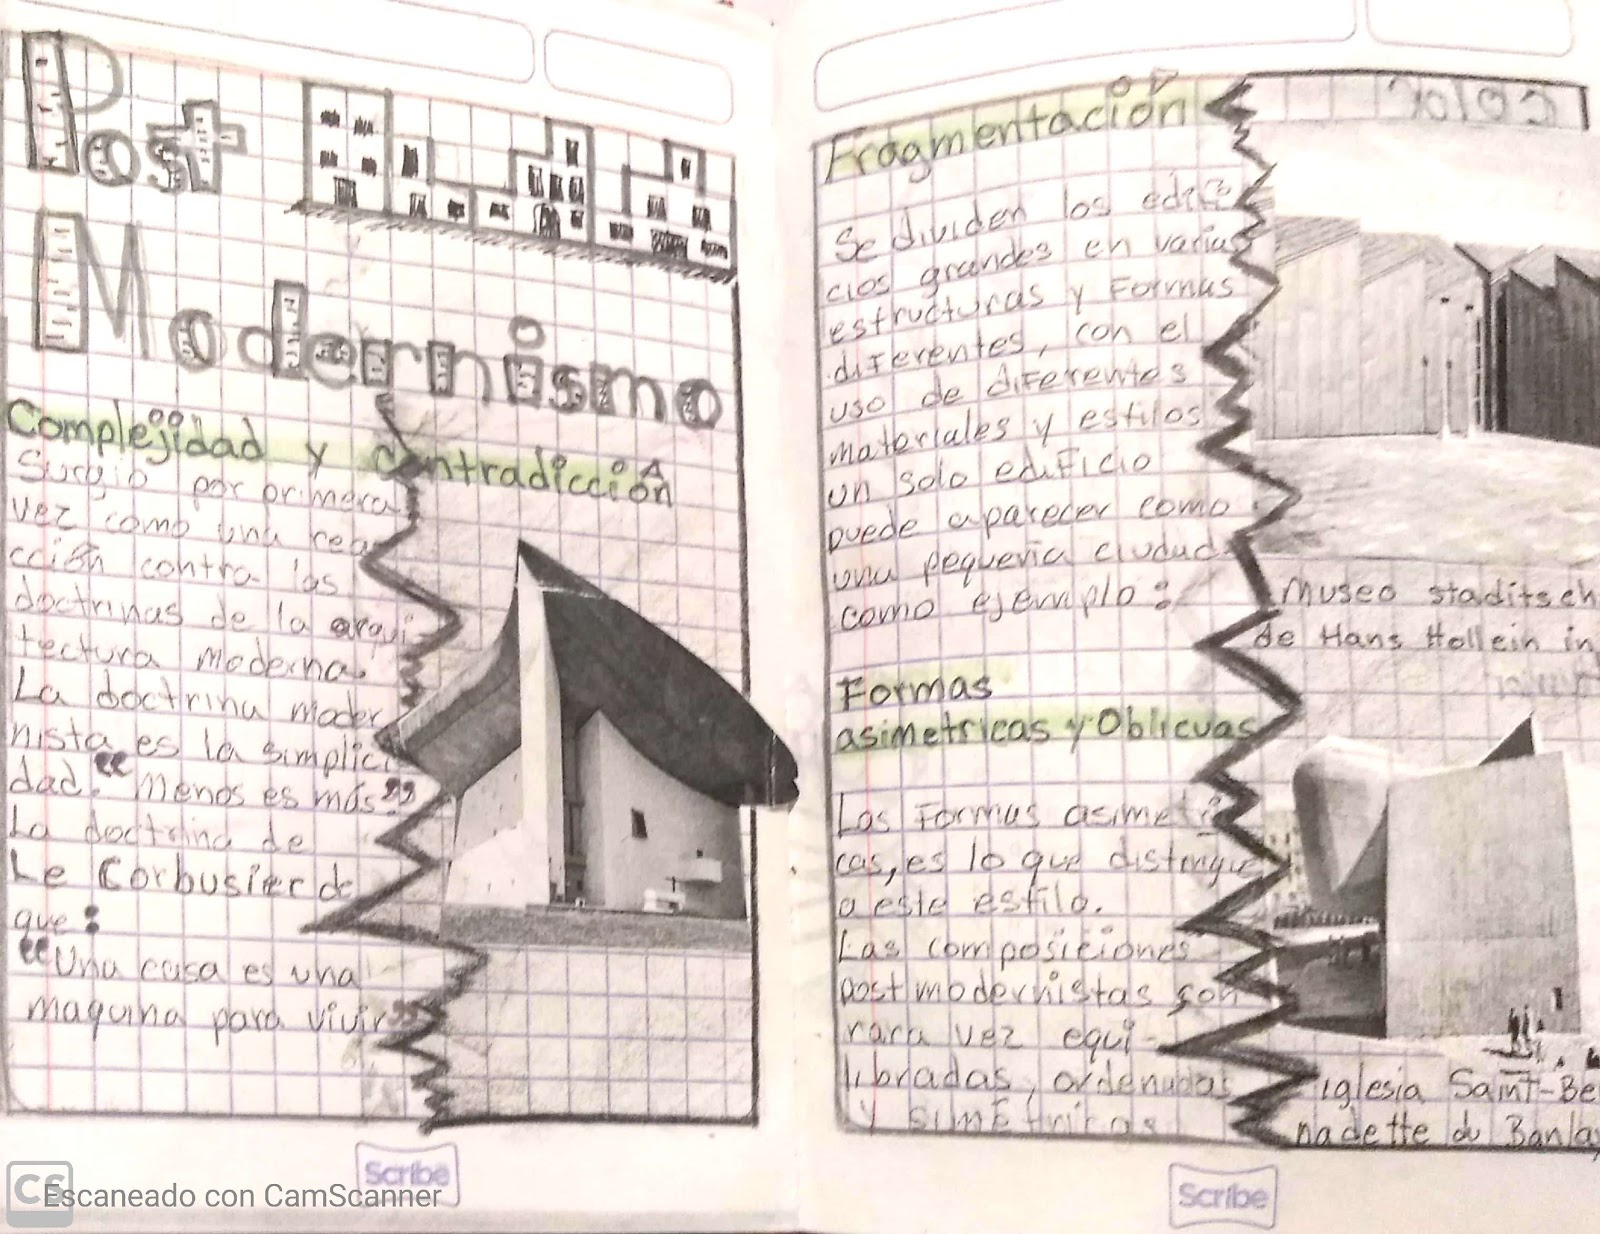 Post
Modernismo
Complejidad y contradicción
Surgio por primera
vez como una rea
cción contra las
doctrinas de la arqui
tectura moderna.
La doctrina moder
nista es la simplici
dad. "Menos es más"
La doctrina de
Le Corbusier de
que:
"Una casa es una
maquina para vivir"
Scribe
CS Escaneado con CamScanner
Fragmentación
Se dividen los edifi
cios grandes en varias
estructuras y Formas
diferentes, con el
uso de diferentes
materiales y estilos
un solo edificio
puede aparecer como
una pequeña ciudad
como ejemplo:
Museo staditsch
de Hans Hollein in
Formas
asimetricas y Oblicuas
Las Formas asimetri
cas, es lo que distingue
a este estilo.
Las composiciones
postmodernistas son
rara vez equi-
libradas, ordenadas
y simétricas
iglesia Saint-Be
nadette du Banlay
Scribe